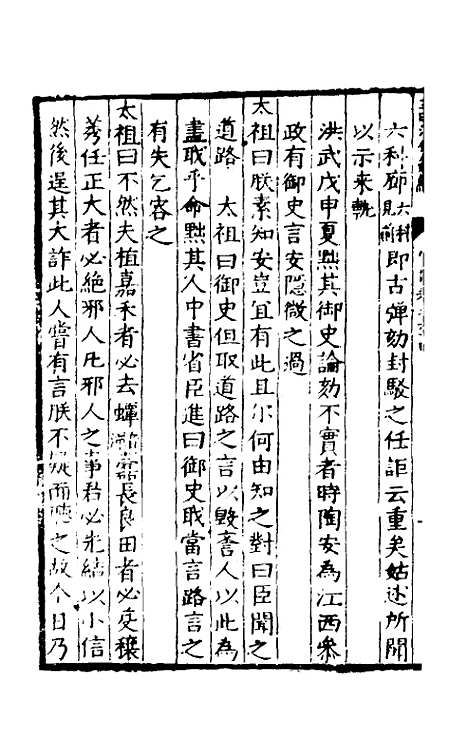 六科廊六科見前即古彈劾封駁之任詎云重矣姑述所聞
以示来軌
洪武戊申夏黜其御史論劾不實者時陶安為江西叅
政有御史言安隱微之過
太祖曰朕素知安豈宜有此且尔何由知之對曰臣聞之
道路　太祖曰御史但取道路之言以毀譽人以此為
盡職乎命黜其人中書省臣進曰御史職當言路言之
有失乞容之
太祖曰不然夫植嘉禾者必去蟊長良田者必芟稂
莠任正大者必絶邪人凡邪人之事君必先結以小信
然後逞其大詐此人嘗有言朕不疑而聽之故今日乃